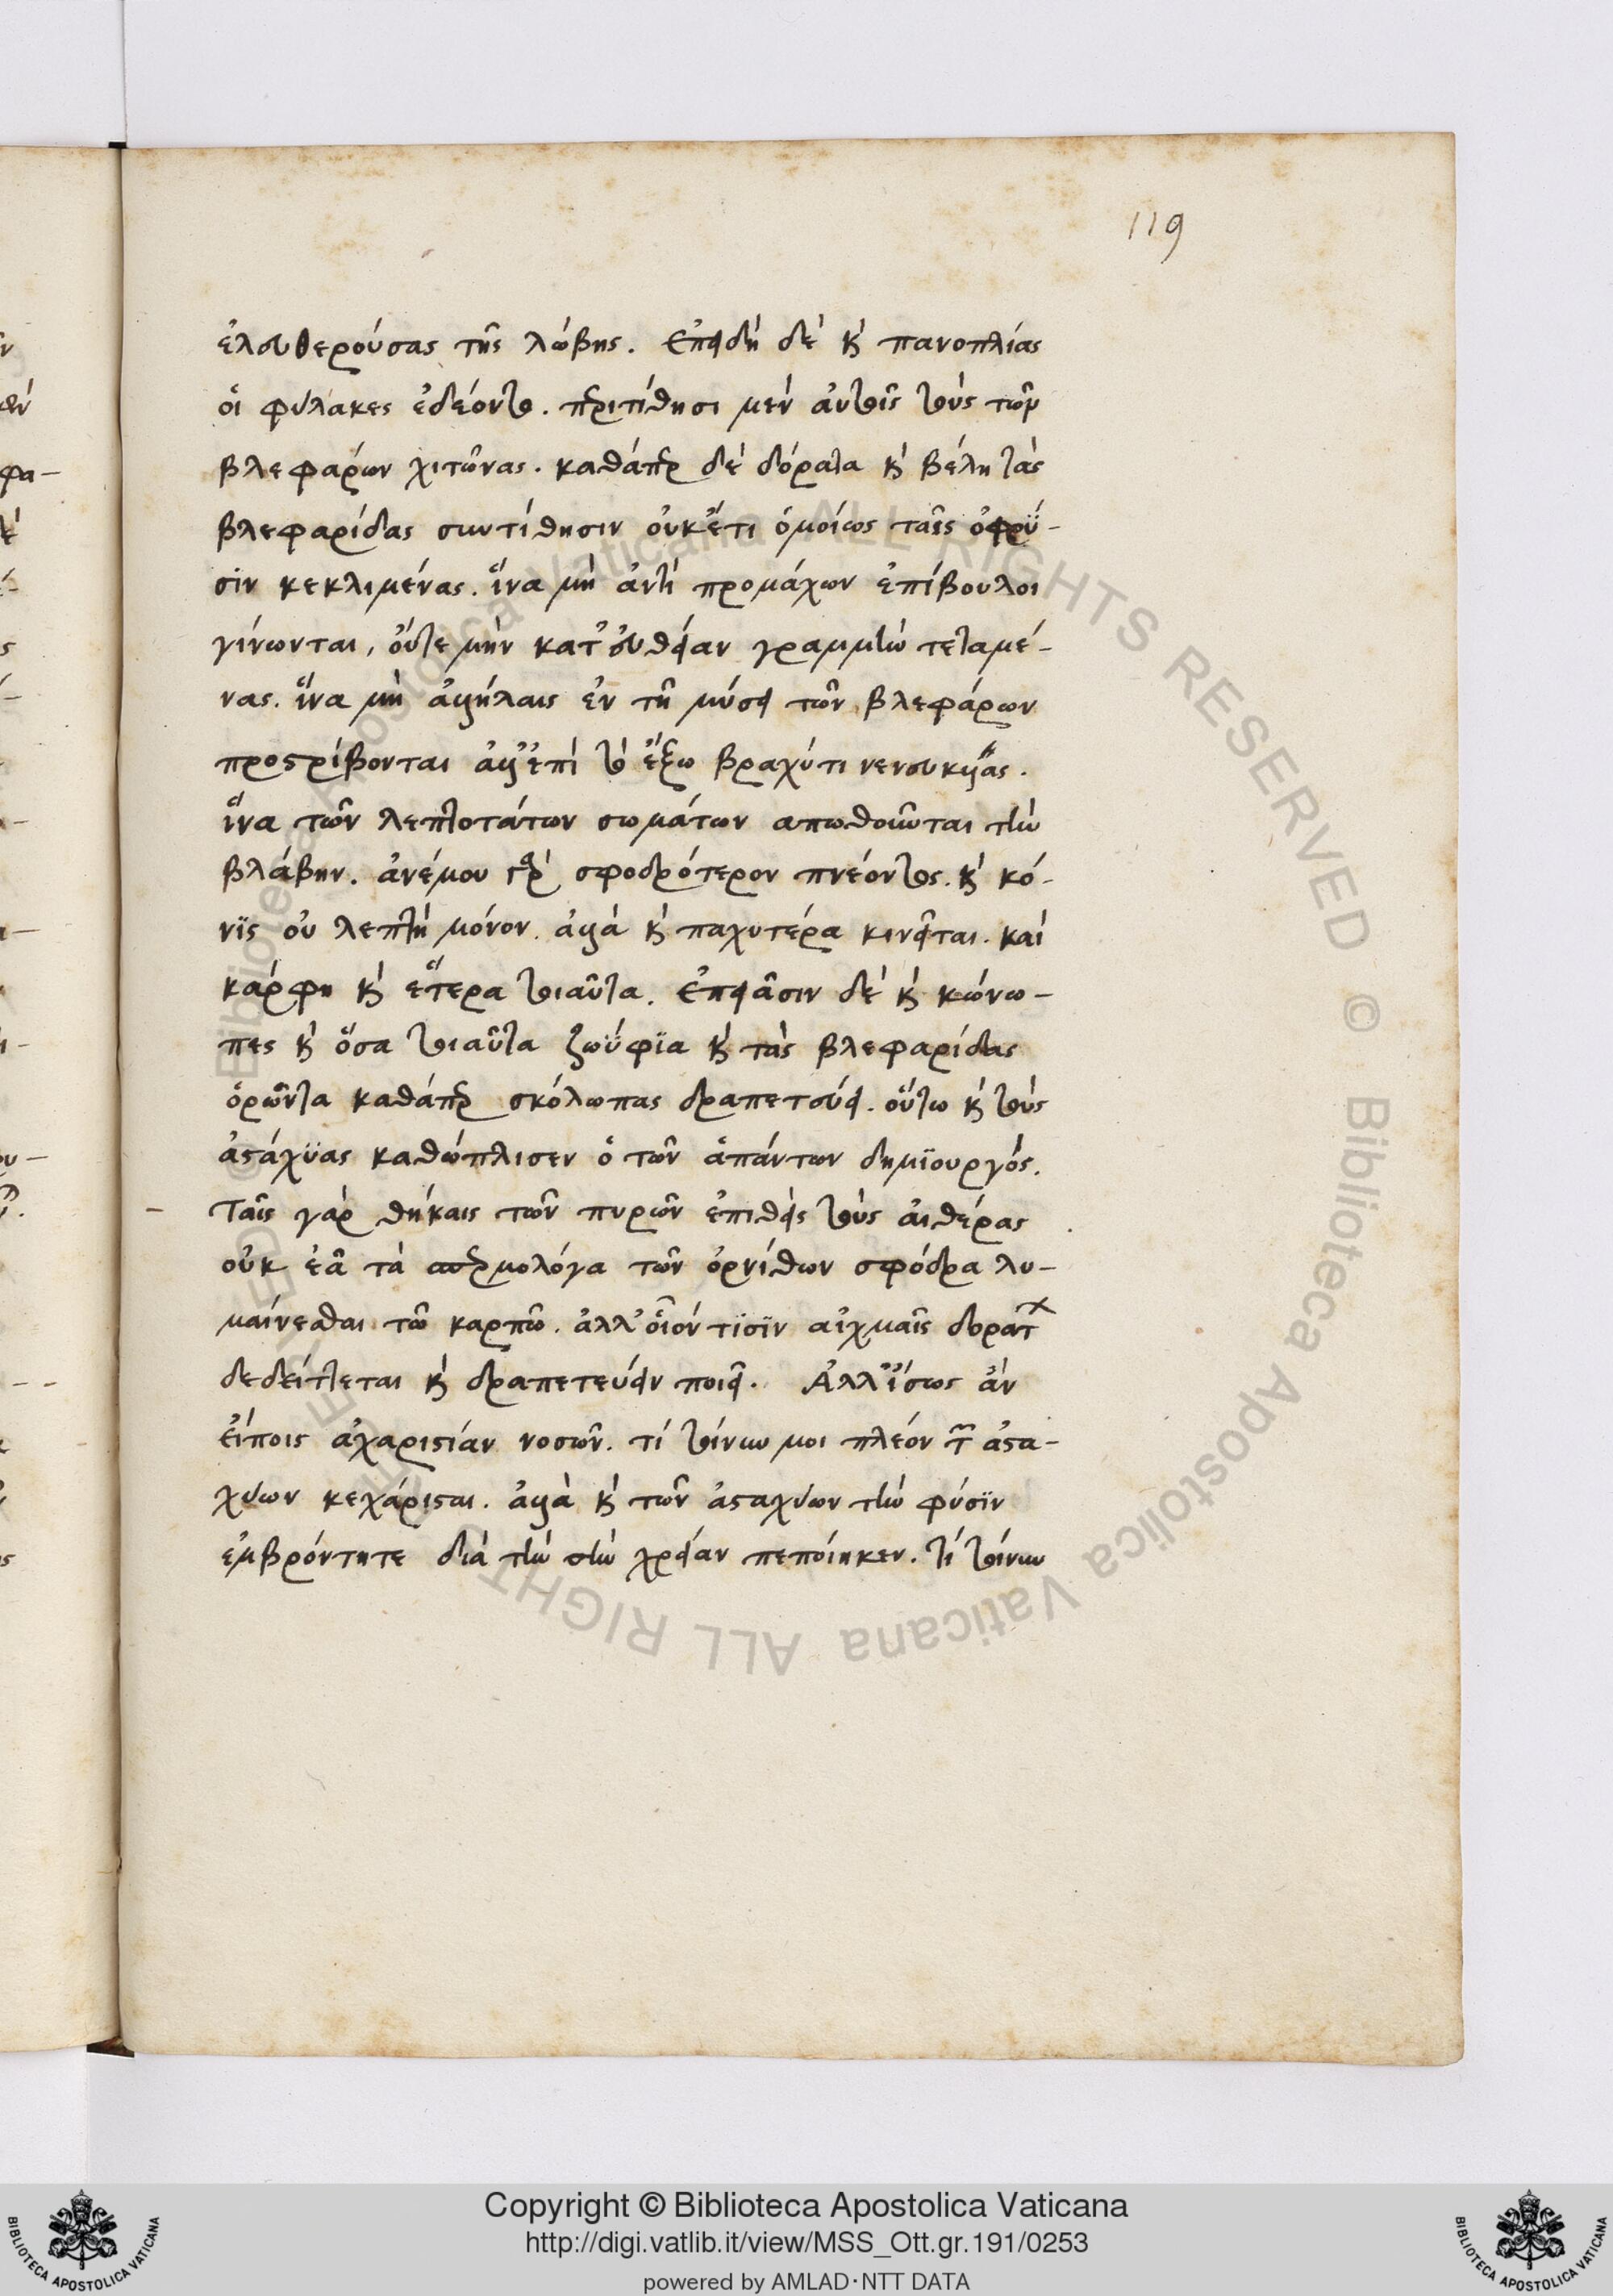 119
ἐλευθερούσας τῆς λώβης. Ἐπειδὴ δὲ κὶ πανοπλίας
οἱ φύλακες ἐδέοντο. περιτίθησι μὲν αὐτοῖς τοὺς τῶν
βλεφάρων χιτῶνας. καθάπερ δὲ δόρατα κὶ βέλη τὰς
βλεφαρίδας συντίθησιν οὐκέτι ὁμοίως ταῖς ὀφρύ-
σιν κεκλιμένας. ἵνα μὴ ἀντὶ προμάχων ἐπίβουλοι
γίνωνται, οὔτε μὴν κατ' εὐθεῖαν γραμμὴν τεταμέ-
νας. ἵνα μὴ ἀλλήλαις ἐν τῇ μύσει τῶν βλεφάρων
προστρίβονται ἀλλ' ἐπὶ τὸ ἔξω βραχύ τι νενευκυίας.
ἵνα τῶν λεπτοτάτων σωμάτων ἀπωθοῦνται τὴν
βλάβην. ἀνέμου γὰρ σφοδρότερον πνέοντος. κὶ κό-
νϊς οὐ λεπτὴ μόνον. ἀλλὰ κὶ παχυτέρα κινεῖται. καὶ
κάρφη κὶ ἕτερα τοιαῦτα. Ἐπειᾶσιν δὲ κὶ κώνω-
πες κὶ ὅσα τοιαῦτα ζωΰφϊα κὶ τὰς βλεφαρίδας
ὁρῶντα καθάπερ σκόλωπας δραπετεύει. οὕτω κὶ τοὺς
ἀστάχϋας καθώπλισεν ὁ τῶν ἁπάντων δημϊουργός.
Ταῖς γὰρ θήκαις τῶν πυρῶν ἐπιθεὶς τοὺς ἀιθέρας
οὐκ ἐᾶ τὰ σπερμολόγα τῶν ὀρνίθων σφόδρα λυ-
μαίνεσθαι τῶ καρπῶ. ἀλλ' οἷόν τϊσϊν αἰχμαῖς δοράτ
δεδείττεται κὶ δραπετεύειν ποιεῖ. Ἀλλ' ἴσως ἂν
εἴποις ἀχαριστίαν νοσῶν. τί τοίνυν μοι πλέον τ ἀστα-
χύων κεχάρισται. ἀλλὰ κὶ τῶν ἀσταχύων τὴν φύσϊν
ἐμβρόντητε διὰ τὴν σὴν χρείαν πεποίηκεν. τί τοίνυν
Copyright © Biblioteca Apostolica Vaticana
http://digi.vatlib.it/view/MSS_Ott.gr.191/0253
powered by AMLAD·NTT DATA